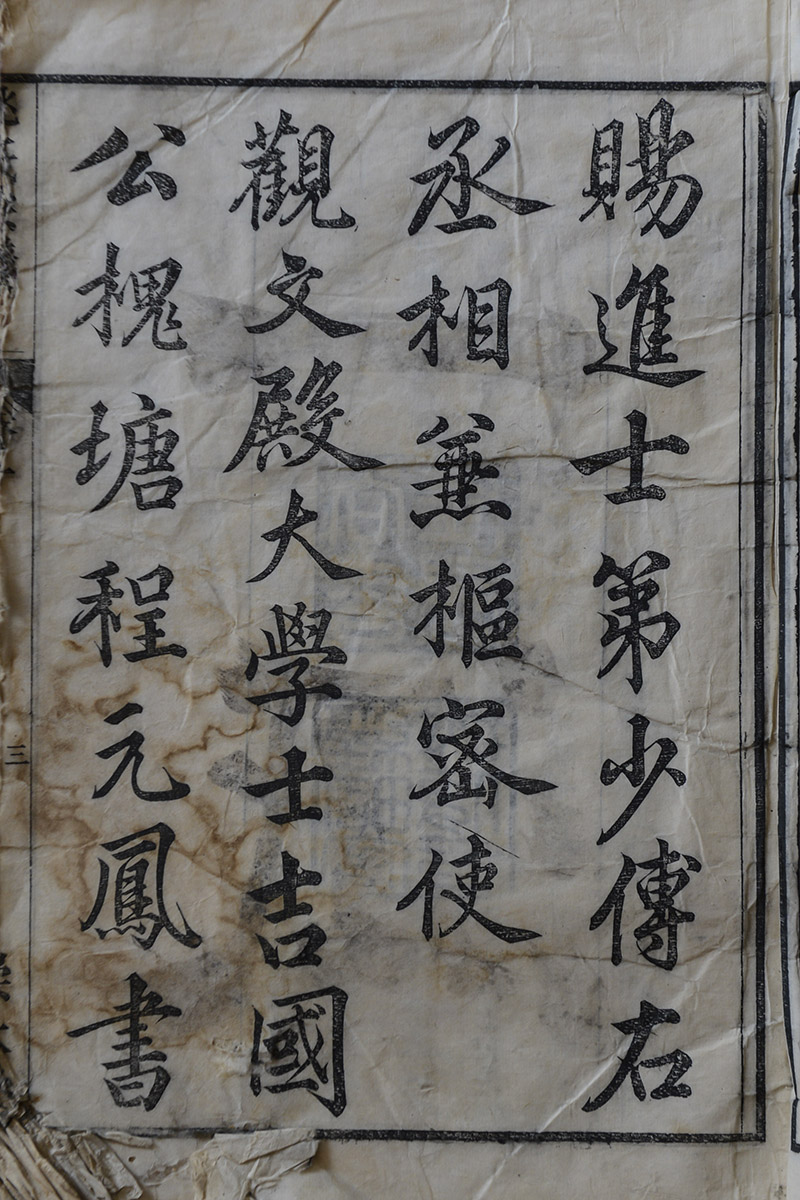 賜進士第少傅右
丞相兼樞密使
觀文殿大學士吉國
公槐塘程元鳳書
三